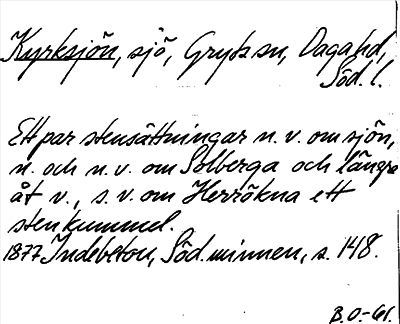 Kyrksjön, sjö, Gryts sn, Daga hd,
Söd. l.
Ett par stensättningar n. v. om sjön,
n. och n. v. om Solberga och längre
åt v., s. v. om Herrökna ett
stenkummel.
1877 Indebetou, Söd. minnen, s. 148.
B. O. -61.